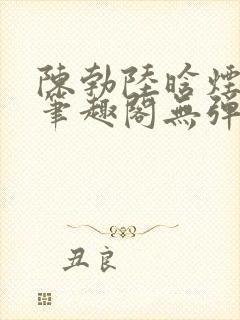 陳勃陸晗煙
筆趣閣無彈
丑良